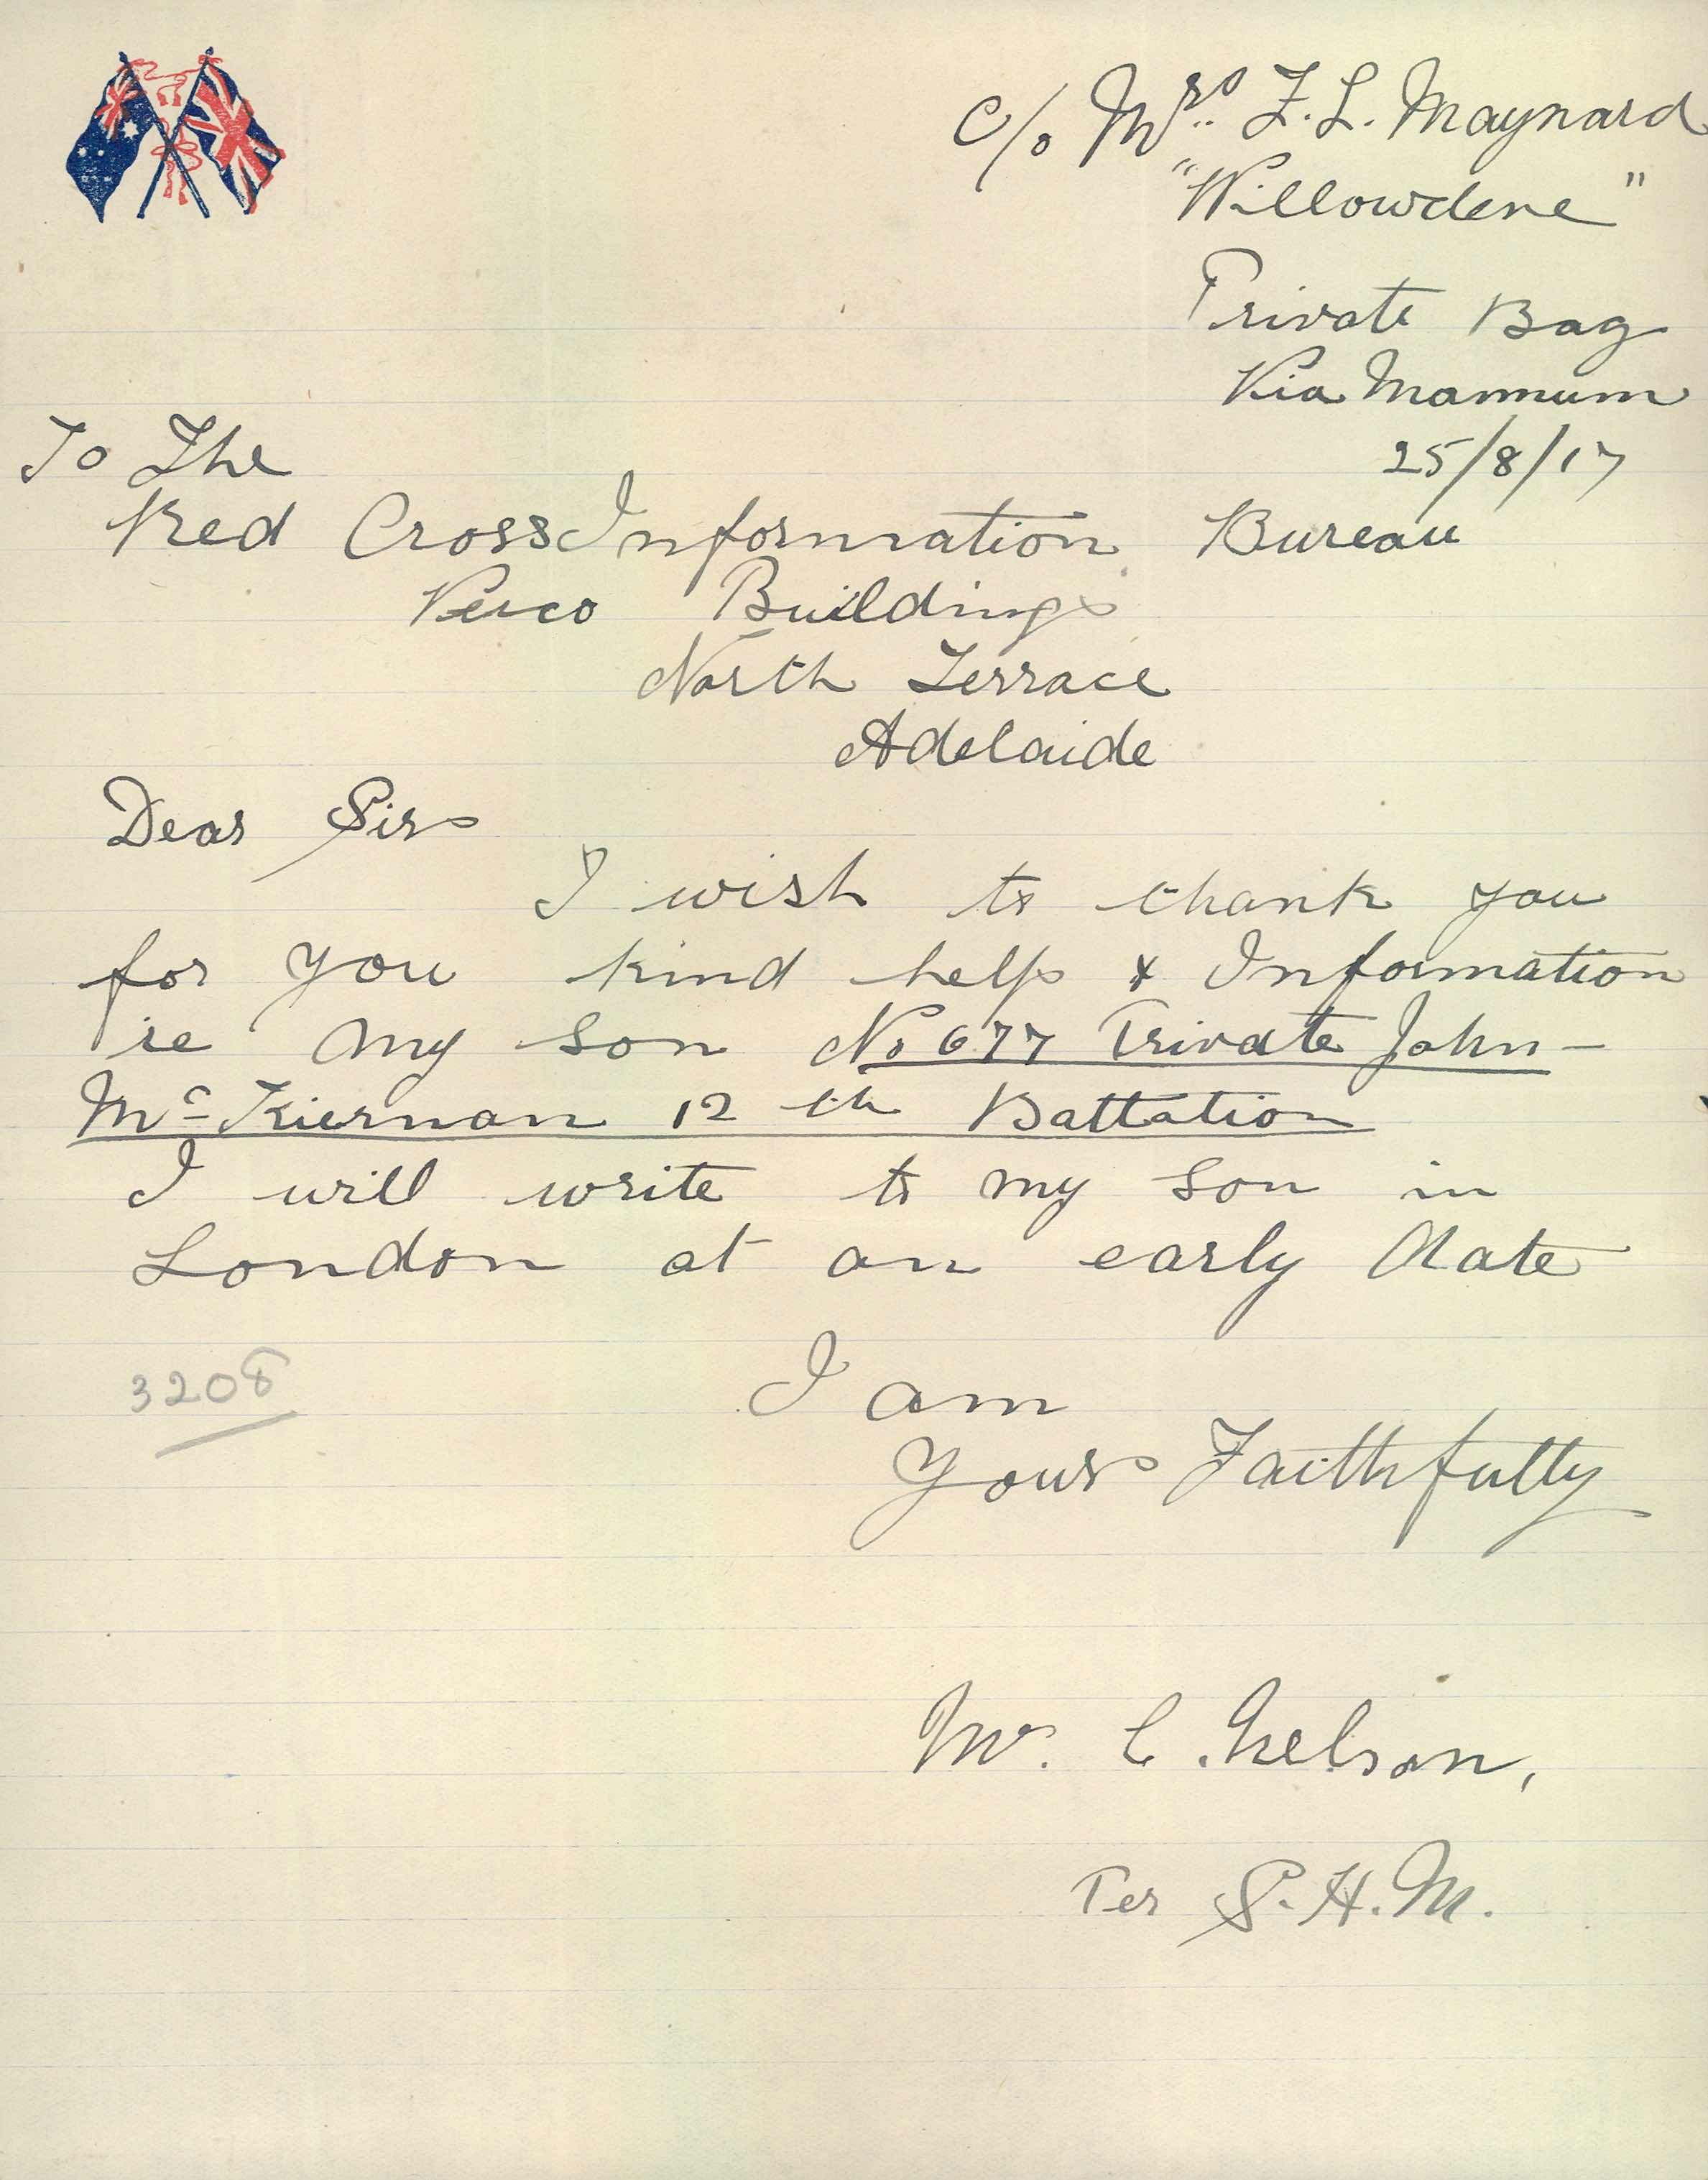 c/o Mrs. F. L. Maynard
"Willowdene"
Private Bag
Via Mannum
25/8/17
To The
Red Cross Information Bureau
Verco Buildings
North Terrace
Adelaide
Dear Sirs
I wish to thank you
for you kind help & Information
re my son No 677 Private John
McKiernan 12th Battation
I will write to my son in
London at an early date
3208
I am
Yours Faithfully
C. Nelson,
Per S. H. M.